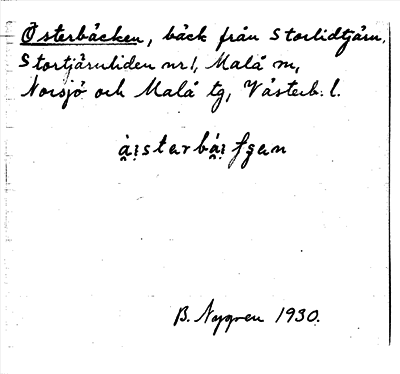 Österbäcken, bäck från Storlidtjärn.
Stortjärnliden nr 1, Malå sn,
Norsjö och Malå tg, Västerb. l.
B. Nygren 1930.